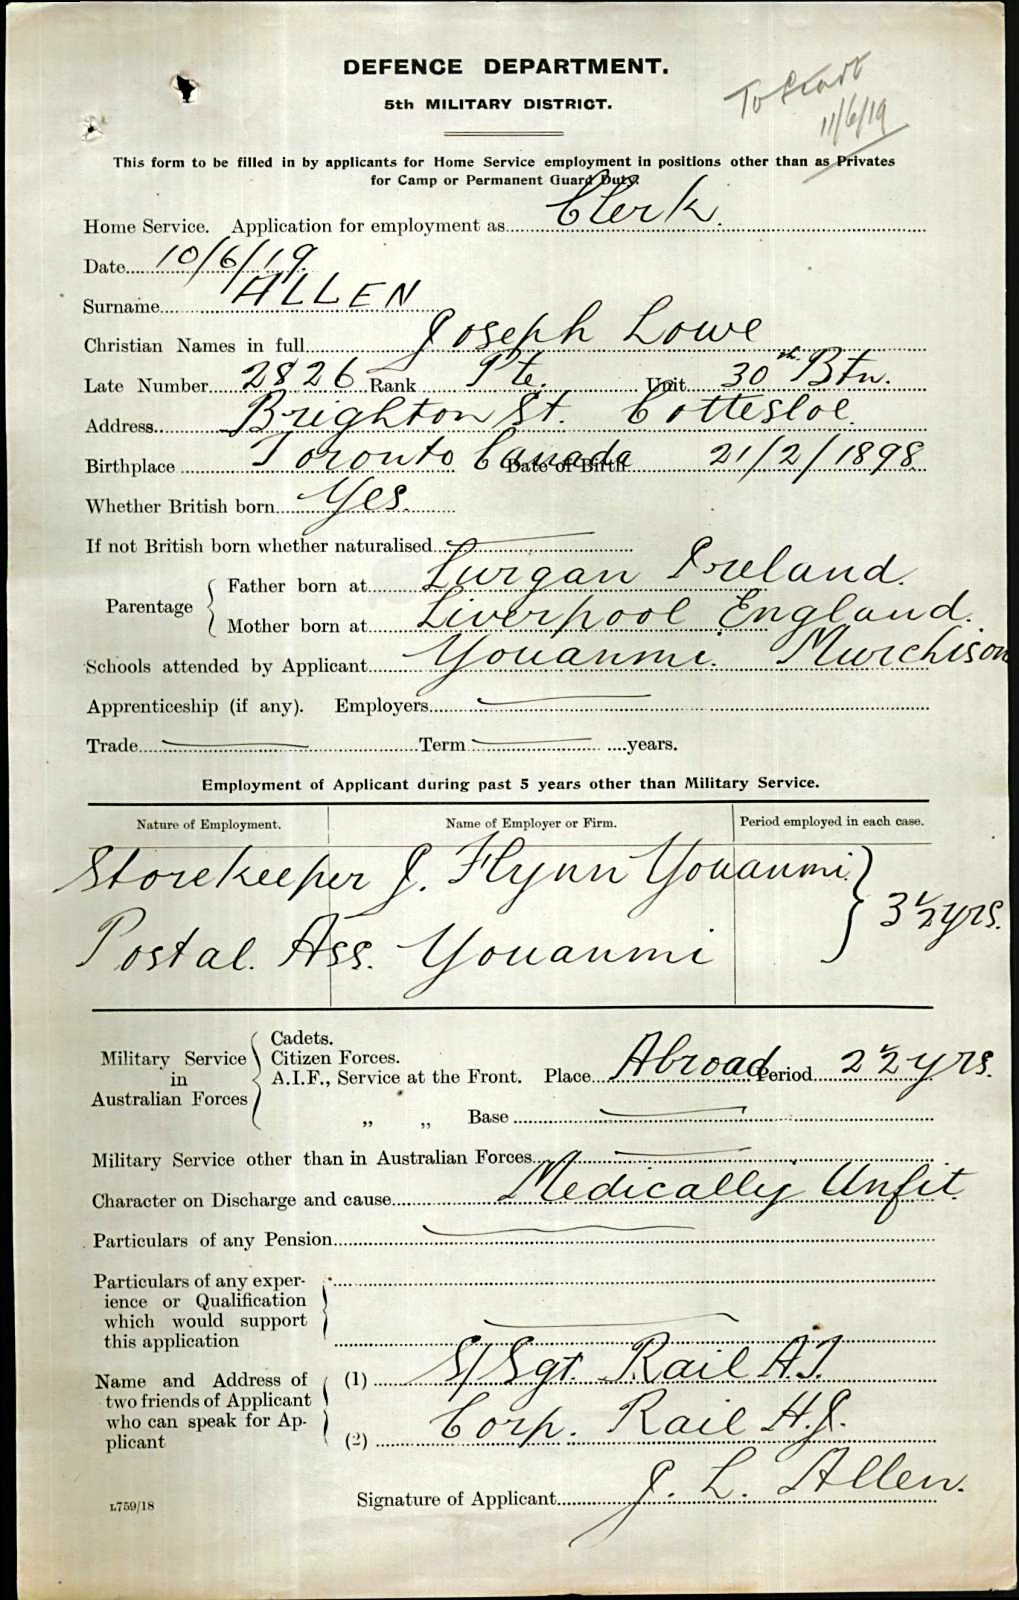 DEFENCE DEPARTMENT.
5th MILITARY DISTRICT.
To Start
11/6/19
This form to be filled in by applicants for Home Service employment in positions other than as Privates
for Camp or Permanent Guard Duty.
Home Service. Application for employment as Clerk.
Date 10/6/19.
Surname ALLEN
Christian Names in full Joseph Lowe
Late Number 2826 Rank Pte. Unit 30th Btn.
Address Brighton St. Cottesloe.
Birthplace Toronto Canada Date of Birth 21/2/1898
Whether British born Yes.
If not British born whether naturalised —
Parentage { Father born at Lurgan Ireland.
Mother born at Liverpool England.
Schools attended by Applicant Youanmi. Murchison
Apprenticeship (if any). Employers —
Trade — Term — years.
Employment of Applicant during past 5 years other than Military Service.
Nature of Employment. Name of Employer or Firm. Period employed in each case.
Storekeeper J. Flynn Youanmi. } 3½ yrs.
Postal. Ass. Youanmi
Military Service in Australian Forces { Cadets.
Citizen Forces.
A.I.F., Service at the Front. Place Abroad Period 2½ yrs.
„ „ Base —
Military Service other than in Australian Forces —
Character on Discharge and cause Medically Unfit.
Particulars of any Pension —
Particulars of any exper-
ience or Qualification
which would support
this application —
Name and Address of (1) S/Sgt. Rail A.J.
two friends of Applicant
who can speak for Ap-
plicant (2) Corp. Rail H.J.
Signature of Applicant J. L. Allen.
L759/18